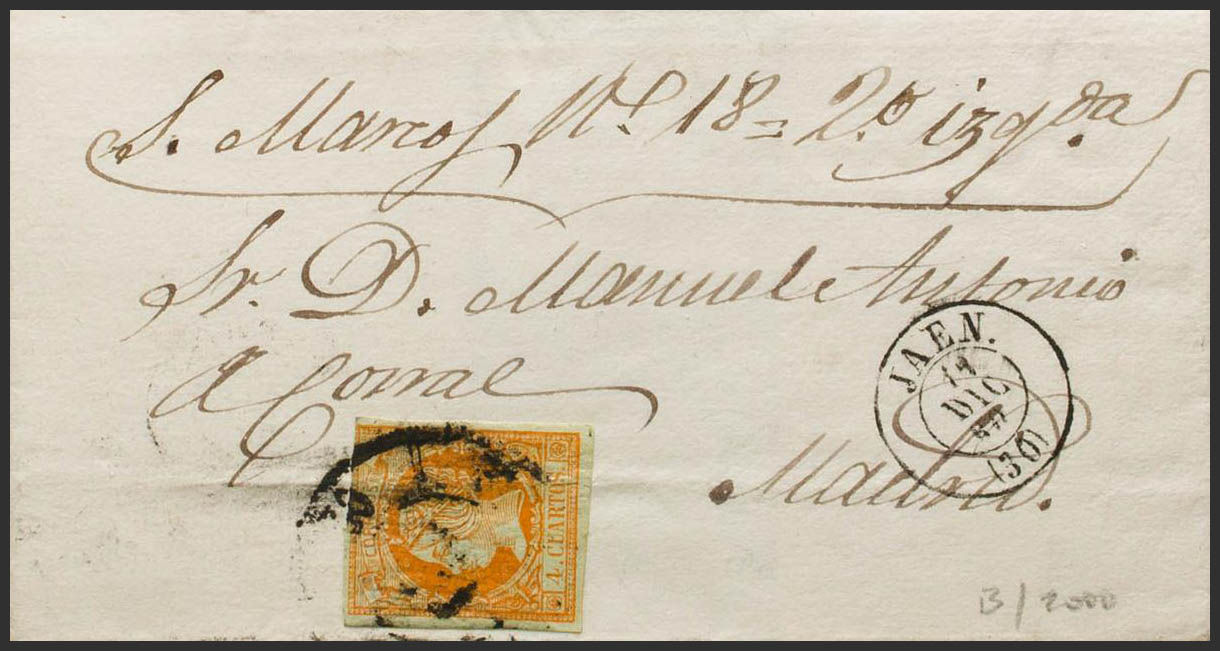 S. Marcos Nº. 18 = 2.º izqda.
Sr. D. Manuel Antonio
Corral
Madrid.
JAEN.
DIC
(30)
4. CUARTOS
B/2000